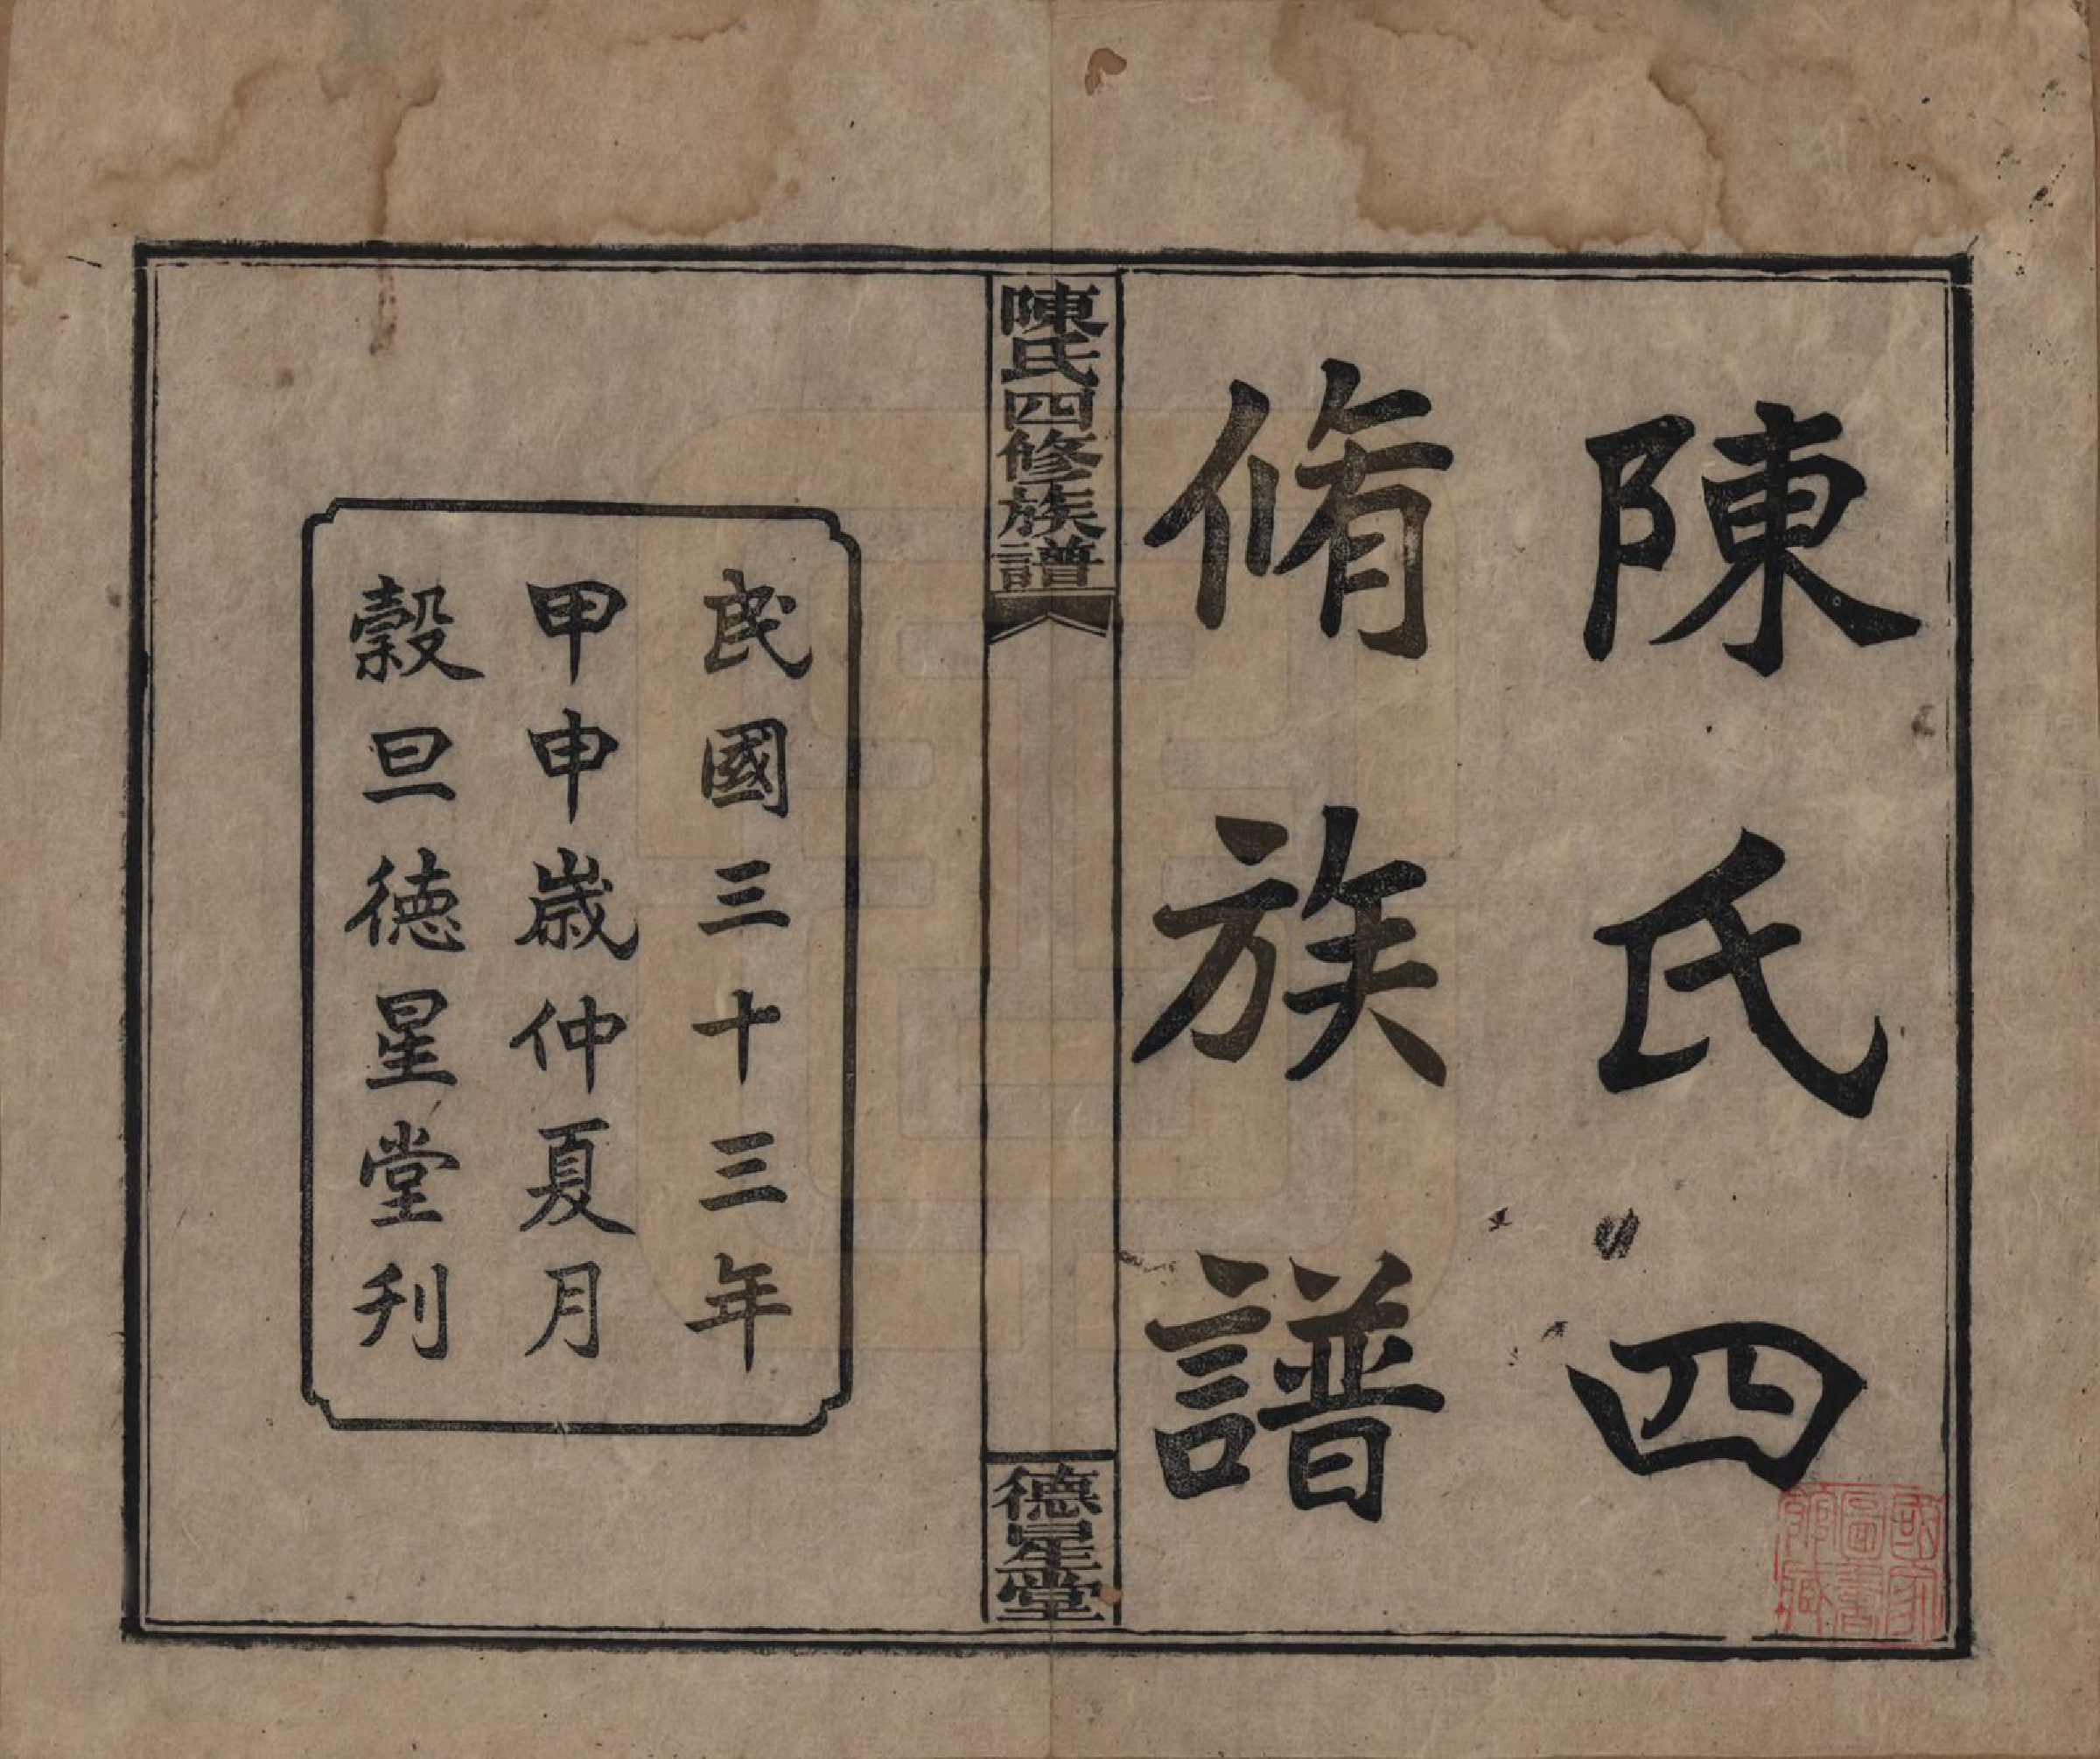 陳氏四
脩族譜
陳氏四修族譜
德星堂
民國三十三年
甲申歲仲夏月
穀旦德星堂刊
國家
圖書
館藏